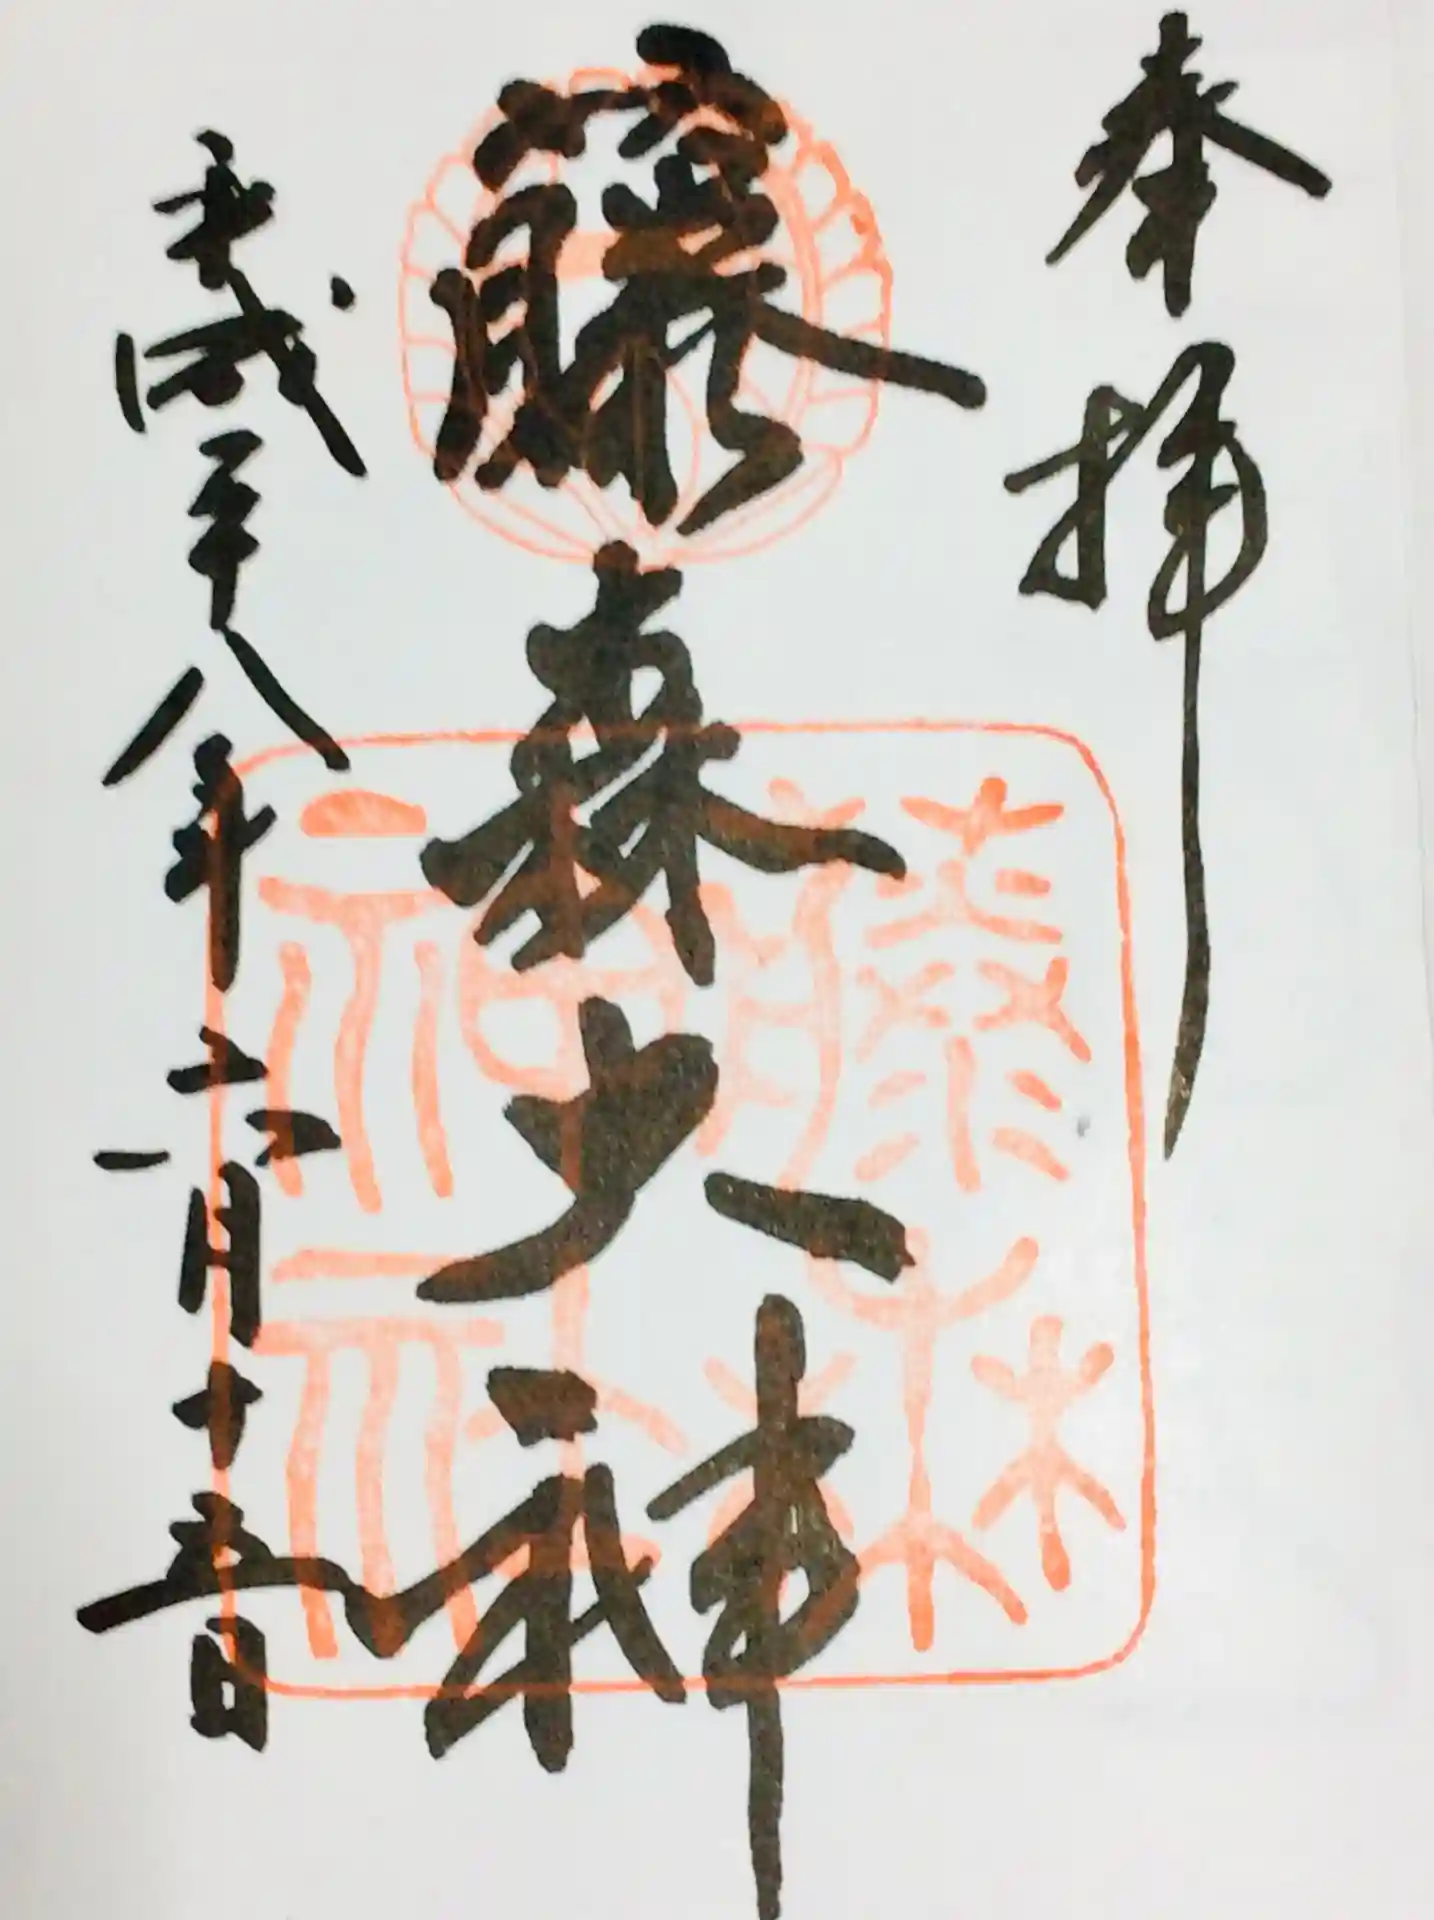 奉拝
藤森大神
平成二十八年六月十五日
藤森
神社